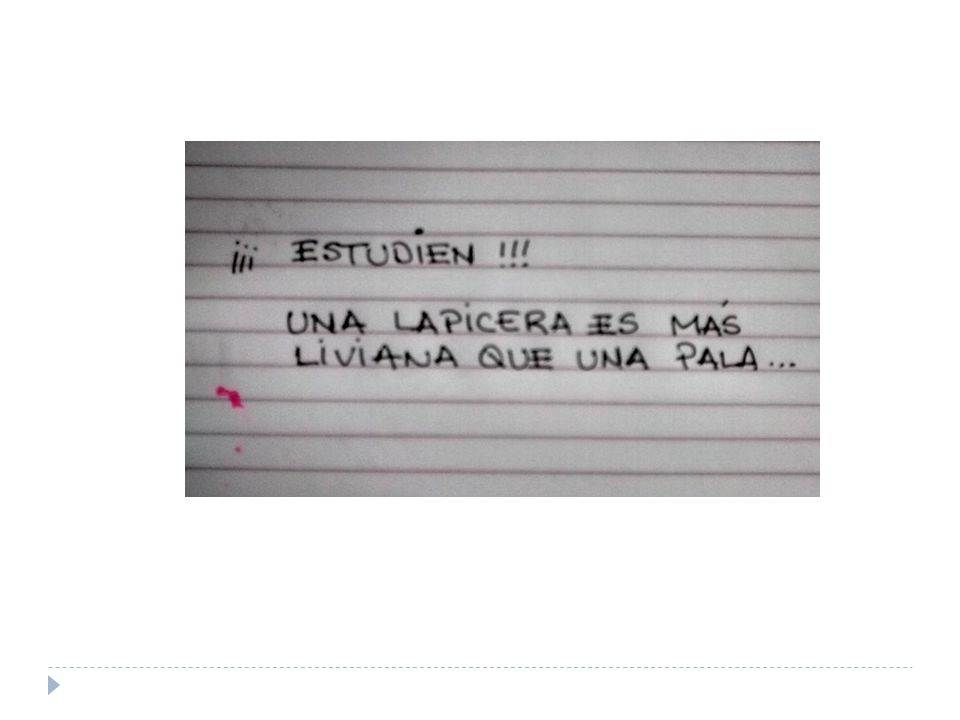 ¡¡¡ ESTUDIEN !!!
UNA LAPICERA ES MÁS
LIVIANA QUE UNA PALA...